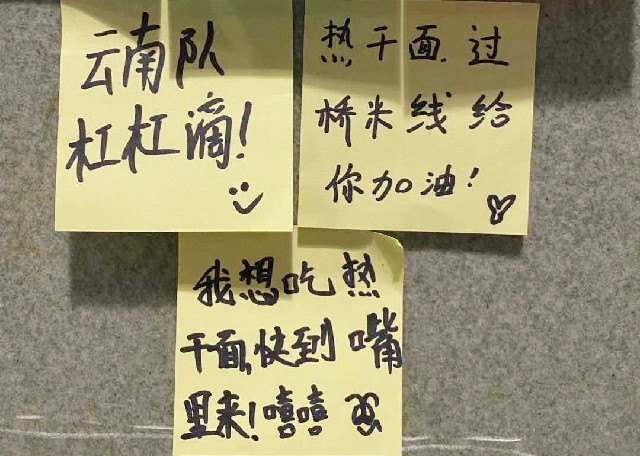 云南队
杠杠滴!
热干面.过
桥米线给
你加油!
我想吃热
干面,快到嘴
里来!嘻嘻